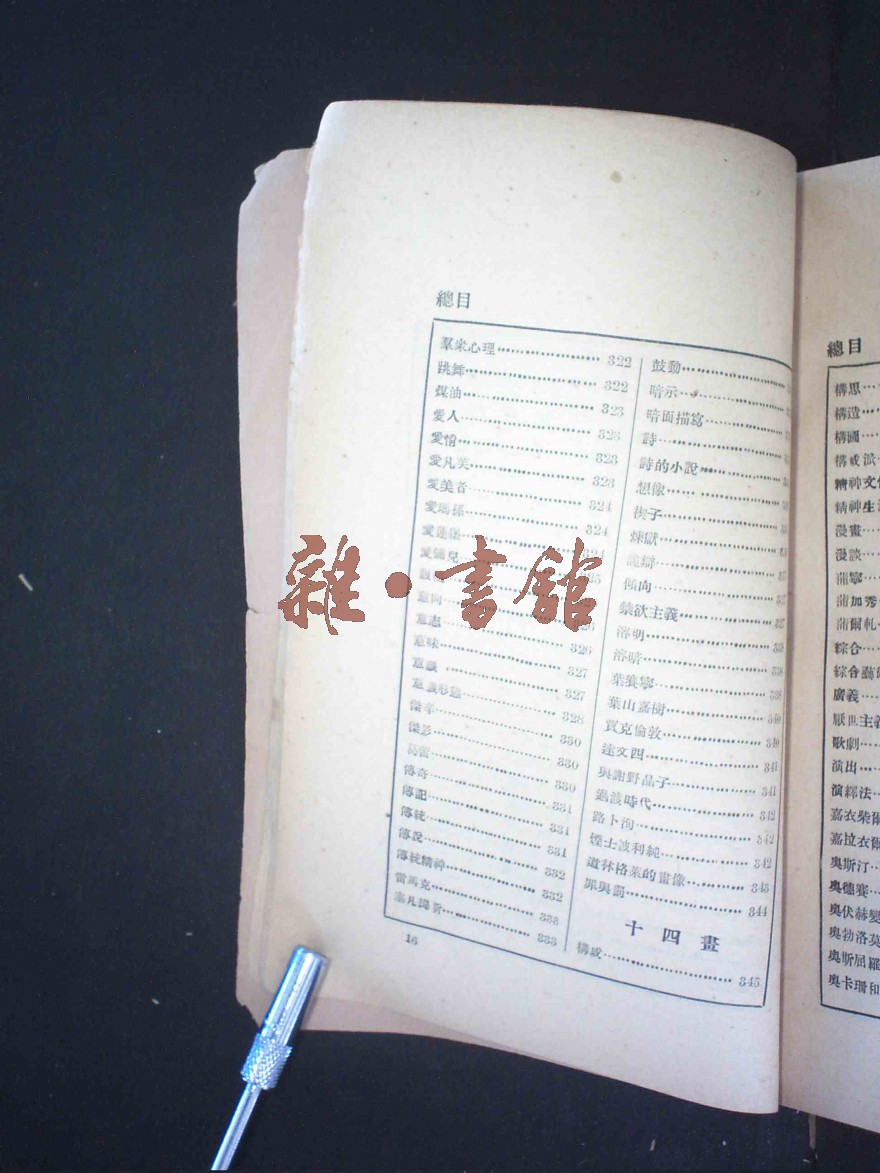 總目
羣眾心理 322
跳舞 322
煤油 323
愛人 323
愛情 323
愛凡芙 323
愛美者 324
愛瑪孫 324
愛蓮堡 324
愛彌兒
意向
意志 326
意味 327
意識 327
意識形態 328
傑辛 330
傑影 330
葛雷 330
傳奇 331
傳記 331
傳統 331
傳說 332
傳統精神 332
雷馬克 333
塞凡提斯 333
鼓動
暗示
暗面描寫
詩
詩的小說
想像
楔子
煉獄
詭辯
傾向 337
禁欲主義 337
溶明 338
溶暗 338
葉賽寧 338
葉山嘉樹 340
賈克倫敦 340
達文西 341
與謝野晶子 341
路卜洵 342
煙士波利純 342
道林格萊的畫像 343
罪與罰 344
十四畫
構成 345
16
總目
構思
構造
構圖
構成派
精神文
精神生
漫畫
漫談
蒲寧
蒲加秀
蒲爾軋
綜合
綜合藝
廣義
厭世主義
歌劇
演出
演繹法
嘉衣柴爾
嘉拉衣爾
奧斯汀
奧德賽
奧伏赫變
奧勃洛莫
奧斯屈羅
奧卡珊和
雜·書館